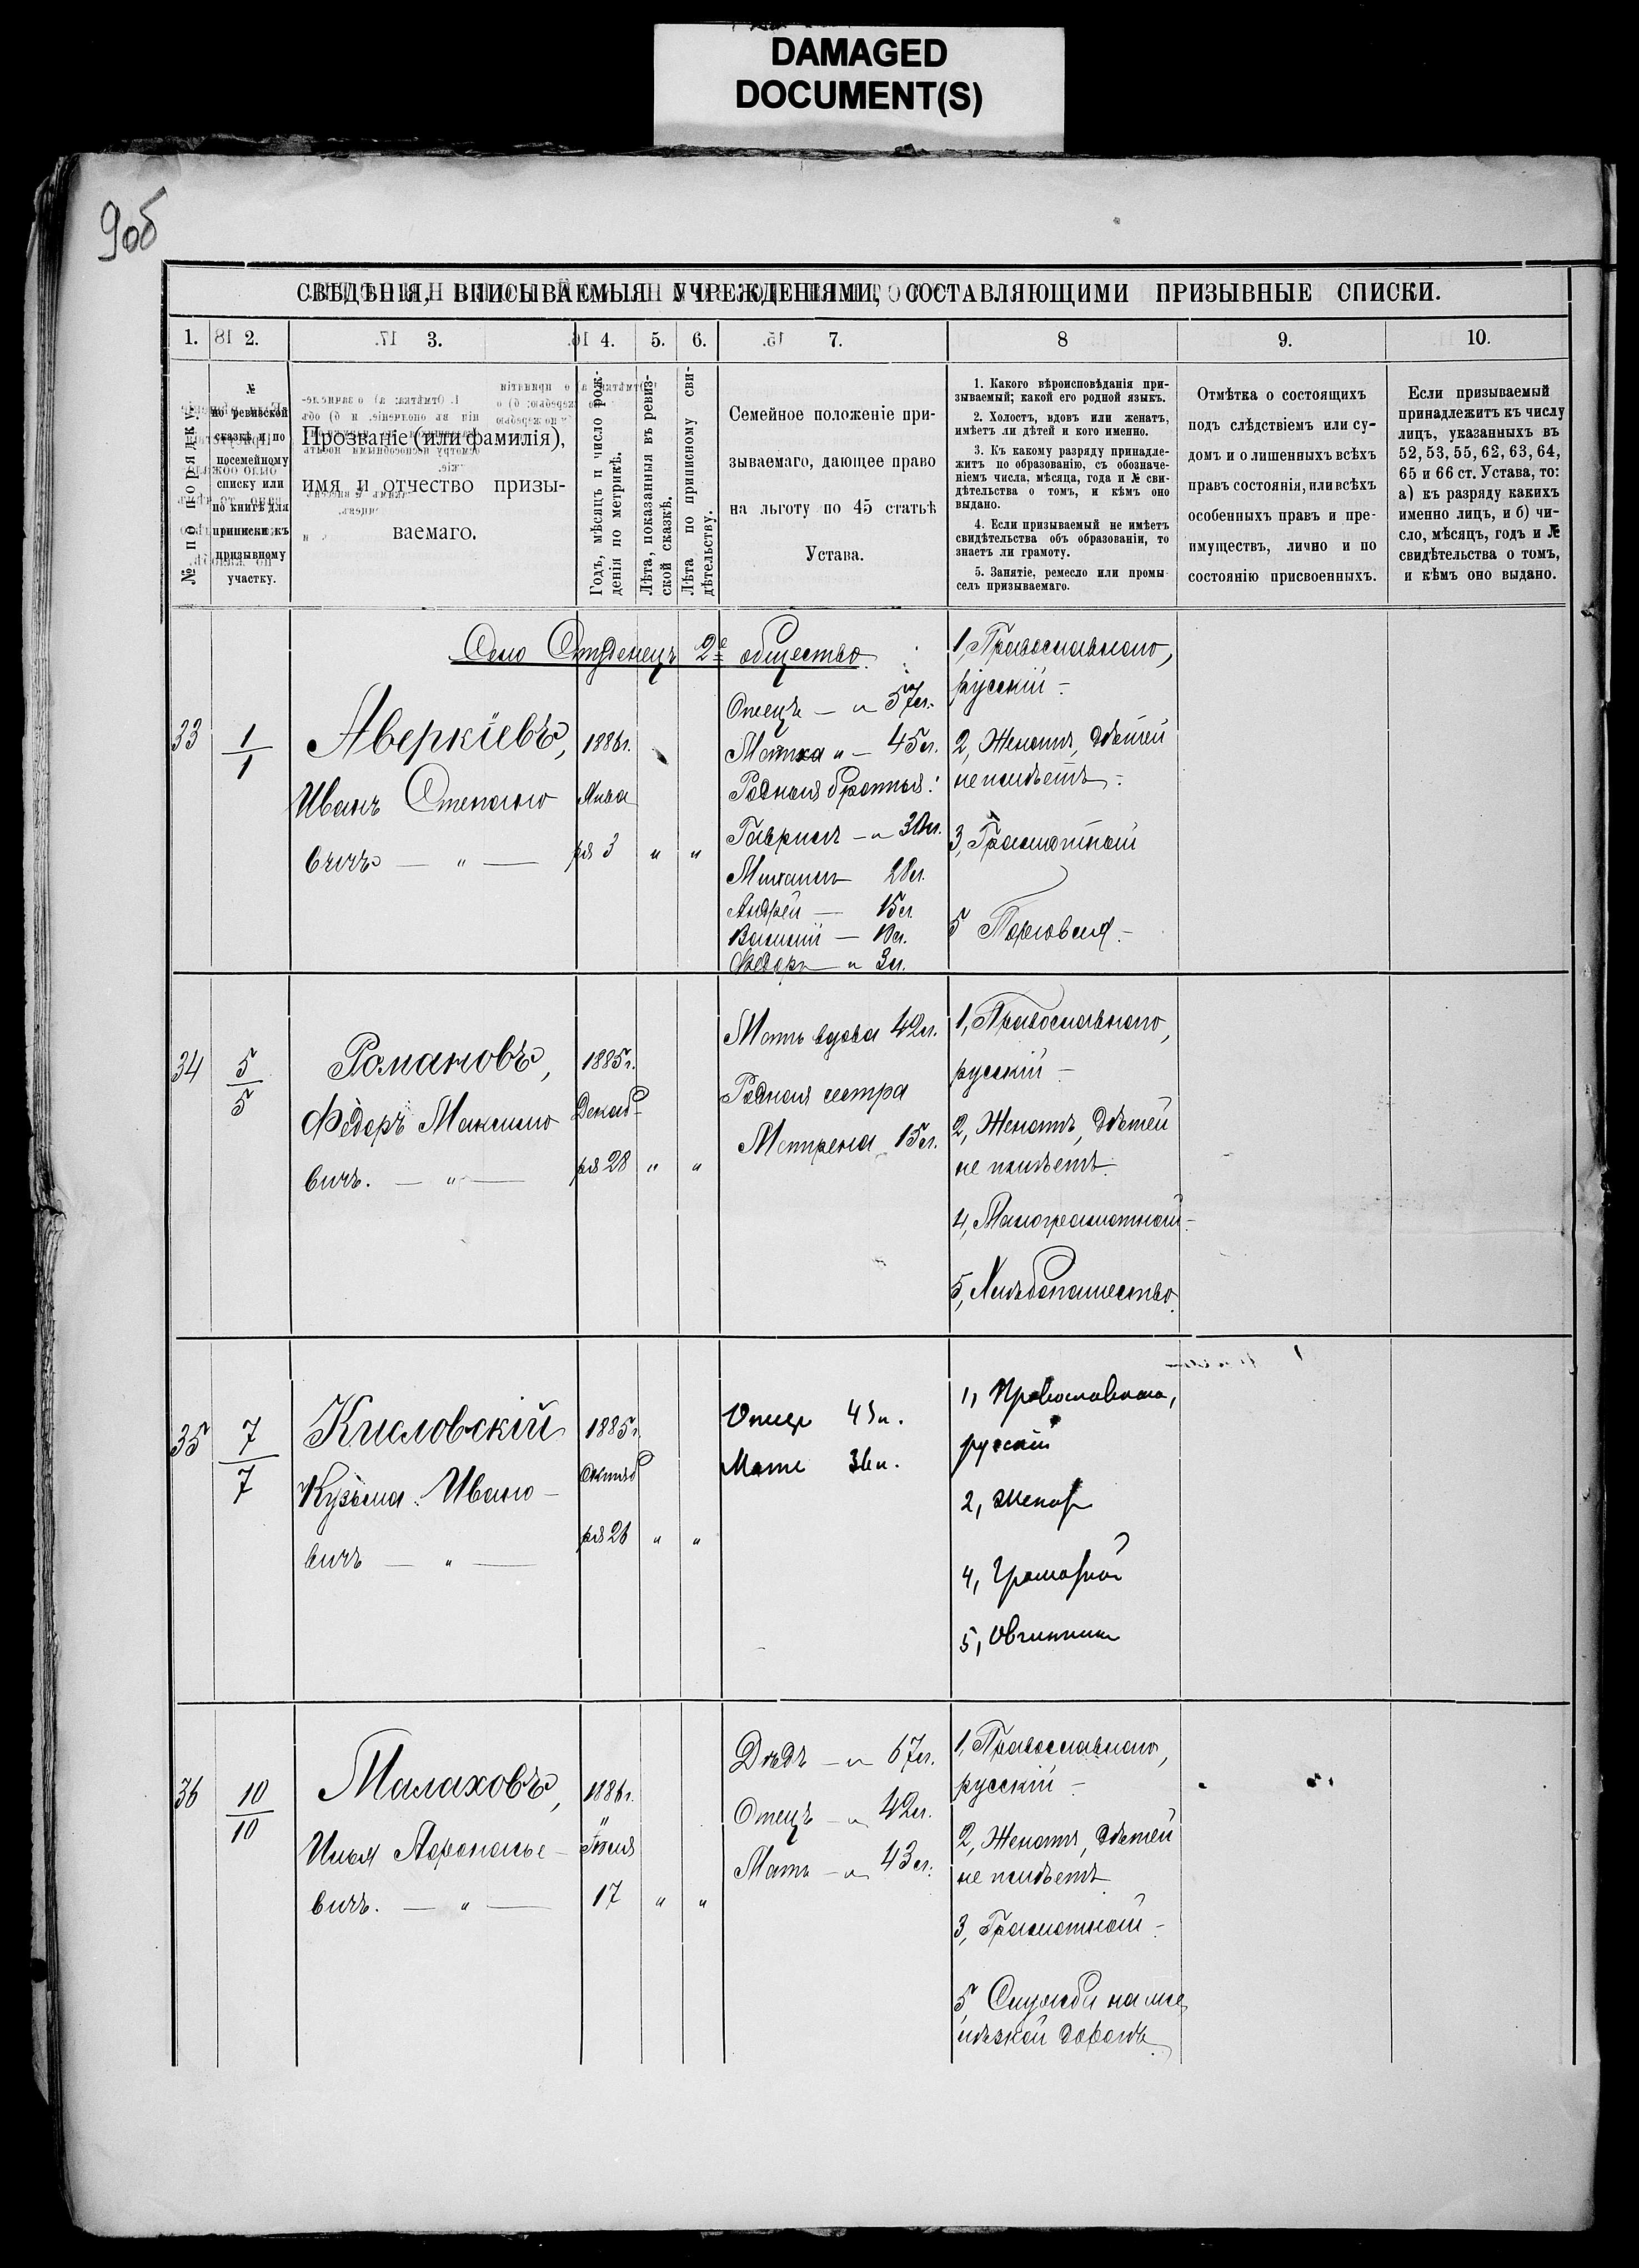 DAMAGED
DOCUMENT(S)
9об
СВѢДѢНІЯ, ВПИСЫВАЕМЫЯ УЧРЕЖДЕНІЯМИ, СОСТАВЛЯЮЩИМИ ПРИЗЫВНЫЕ СПИСКИ.
1. 2. 3. 4. 5. 6. 7. 8 9. 10.
№ по порядку.
№
по ревизской
сказкѣ и по
посемейному
списку или
по книгѣ для
приписки къ
призывному
участку.
Прозваніе (или фамилія),
имя и отчество призы-
ваемаго.
Годъ, мѣсяцъ и число рож-
денія по метрикѣ.
Лѣта, показанныя въ ревиз-
ской сказкѣ.
Лѣта по приписному сви-
дѣтельству.
Семейное положеніе при-
зываемаго, дающее право
на льготу по 45 статьѣ
Устава.
1. Какого вѣроисповѣданія при-
зываемый; какой его родной языкъ.
2. Холостъ, вдовъ или женатъ,
имѣетъ ли дѣтей и кого именно.
3. Къ какому разряду принадле-
житъ по образованію, съ обозначе-
ніемъ числа, мѣсяца, года и № сви-
дѣтельства о томъ, и кѣмъ оно
выдано.
4. Если призываемый не имѣетъ
свидѣтельства объ образованіи, то
знаетъ ли грамоту.
5. Занятіе, ремесло или промы-
селъ призываемаго.
Отмѣтка о состоящихъ
подъ слѣдствіемъ или су-
домъ и о лишенныхъ всѣхъ
правъ состоянія, или всѣхъ
особенныхъ правъ и пре-
имуществъ, лично и по
состоянію присвоенныхъ.
Если призываемый
принадлежитъ къ числу
лицъ, указанныхъ въ
52, 53, 55, 62, 63, 64,
65 и 66 ст. Устава, то:
а) къ разряду какихъ
именно лицъ, и б) чи-
сло, мѣсяцъ, годъ и №
свидѣтельства о томъ,
и кѣмъ оно выдано.
Село Студенецъ 2е общество.
33
1
1
Аверкіевъ,
Иванъ Степано
вичъ — " —
1886 г.
Янва
ря 3 " "
Отецъ — " 57 л.
Матка " — 45 л.
Родныя братья:
Гаврилъ — " 30 л.
Михаилъ 20 л.
Андрей — 15 л.
Василій — 10 л.
Ѳедоръ — " 3 л.
1, Православнаго,
русскій —
2, Женатъ, дѣтей
не имѣетъ —
3, Грамотный
5 Торговля —
34
5
5
Романовъ,
Ѳедоръ Максимо
вичъ. — " —
1885 г.
Декаб-
ря 28 " "
Мать вдова 42 л.
Родная сестра
Матрена 15 л.
1, Православнаго,
русскій —
2, Женатъ, дѣтей
не имѣетъ
4, Малограмотный —
5, Хлѣбопашество.
35
7
7
Кисловскій
Кузьма Ивано-
вичъ — " —
1885 г.
Октяб
ря 26 " "
Отец 43 л.
Мать 36 л.
1, Православнаго,
русскій
2, Женат
4, Грамотной
5, Овчинник
36
10
10
Малаховъ,
Илья Афонасье-
вичъ. — " —
1886 г.
Іюля
17 " "
Дѣдъ — " 67 л.
Отецъ — " 42 л.
Мать — " 43 л.
1, Православнаго,
русскій —
2, Женатъ, дѣтей
не имѣетъ
3, Грамотный —
5, Служба на же
лѣзной дорогѣ.